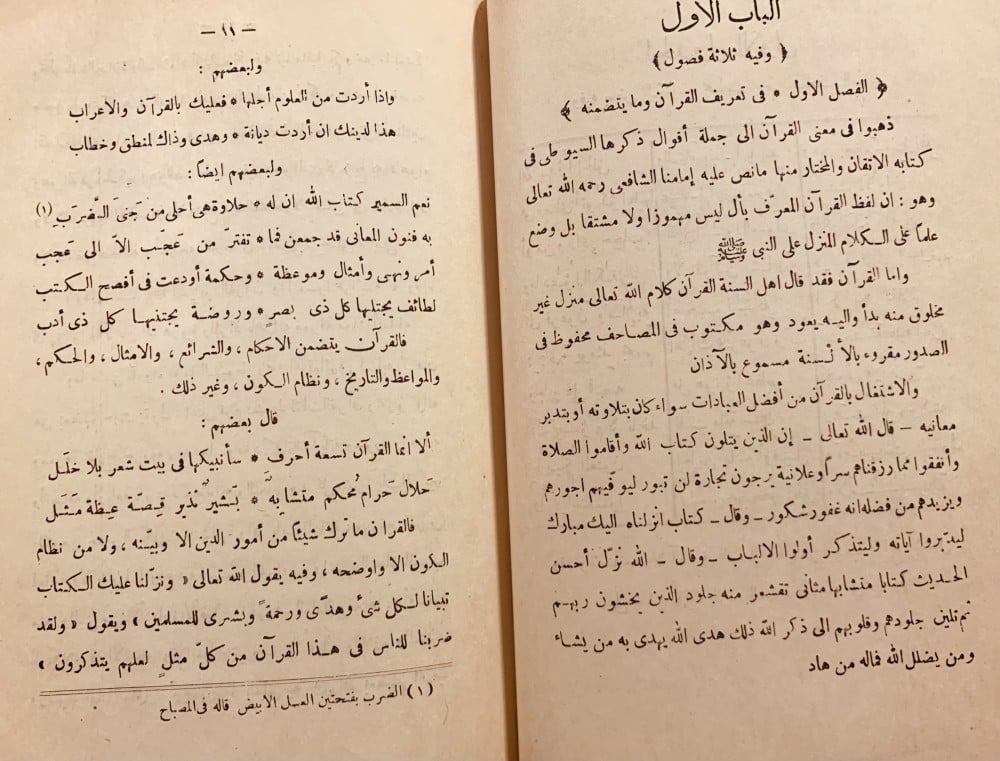 الباب الأول
﴿ وفيه ثلاثة فصول ﴾
﴿ الفصل الاول * فى تعريف القرآن وما يتضمنه ﴾
ذهبوا فى معنى القرآن الى جملة أقوال ذكرها السيوطى فى
كتابه الاتقان والمختار منها مانص عليه إمامنا الشافعى رحمه الله تعالى
وهو : ان لفظ القرآن المعرّف بأل ليس مهموزا ولا مشتقا بل وضع
علماً على الكلام المنزل على النبى ﷺ
واما القرآن فقد قال اهل السنة القرآن كلام الله تعالى منزل غير
مخلوق منه بدأ واليه يعود وهو مكتوب فى المصاحف محفوظ فى
الصدور مقروء بالألسنة مسموع بالآذان
والاشتغال بالقرآن من أفضل العبادات سواء كان بتلاوته أو بتدبر
معانيه – قال الله تعالى – إن الذين يتلون كتاب الله وأقاموا الصلاة
وأنفقوا مما رزقناهم سراً وعلانية يرجون تجارة لن تبور ليوفيهم اجورهم
ويزيدهم من فضله انه غفور شكور – وقال – كتاب انزلناه اليك مبارك
ليدبّروا آياته وليتذكر أولوا الالباب – وقال – الله نزّل أحسن
الحديث كتابا متشابها مثانى تقشعر منه جلود الذين يخشون ربهم
ثم تلين جلودهم وقلوبهم الى ذكر الله ذلك هدى الله يهدى به من يشاء
ومن يضلل الله فماله من هاد
– ١١ –
ولبعضهم :
واذا أردت من العلوم أجلها * فعليك بالقرآن والاعراب
هذا لدينك ان أردت ديانة * وهدى وذاك لمنطق وخطاب
ولبعضهم ايضاً :
نعم السمير كتاب الله ان له * حلاوة هى أحلى من جَنىَ الضَّرَبِ (١)
به فنون المعانى قد جمعن فما * تفترّ من عَجَب الاّ الى عَجب
أمر ونهى وأمثال وموعظة * وحكمة أودعت فى أفصح الكتب
لطائف يجتليها كل ذى بصرٍ * وروضة يجتنيها كل ذى أدب
فالقرآن يتضمن الاحكام ، والشرائع ، والامثال ، والحكم ،
والمواعظ والتاريخ ، ونظام الكون ، وغير ذلك .
قال بعضهم :
ألا انما القرآن تسعة أحرف * سأنبيكها فى بيت شعر بلا خلَل
حَلال حَرام مُحكم متشابهٌ * بَشيرٌ نَذير قِصّة عِظة مَثَل
فالقرآن ماترك شيئاً من أمور الدين الا وبيّنه ، ولا من نظام
الكون الا واوضحه ، وفيه يقول الله تعالى « ونزّلنا عليك الكتاب
تبيانا لكل شئ وهدًى ورحمةً وبشرى للمسلمين » ويقول « ولقد
ضربنا للناس فى هذا القرآن من كلّ مثلٍ لعلهم يتذكرون »
(١) الضرب بفتحتين العسل الابيض قاله فى المصباح